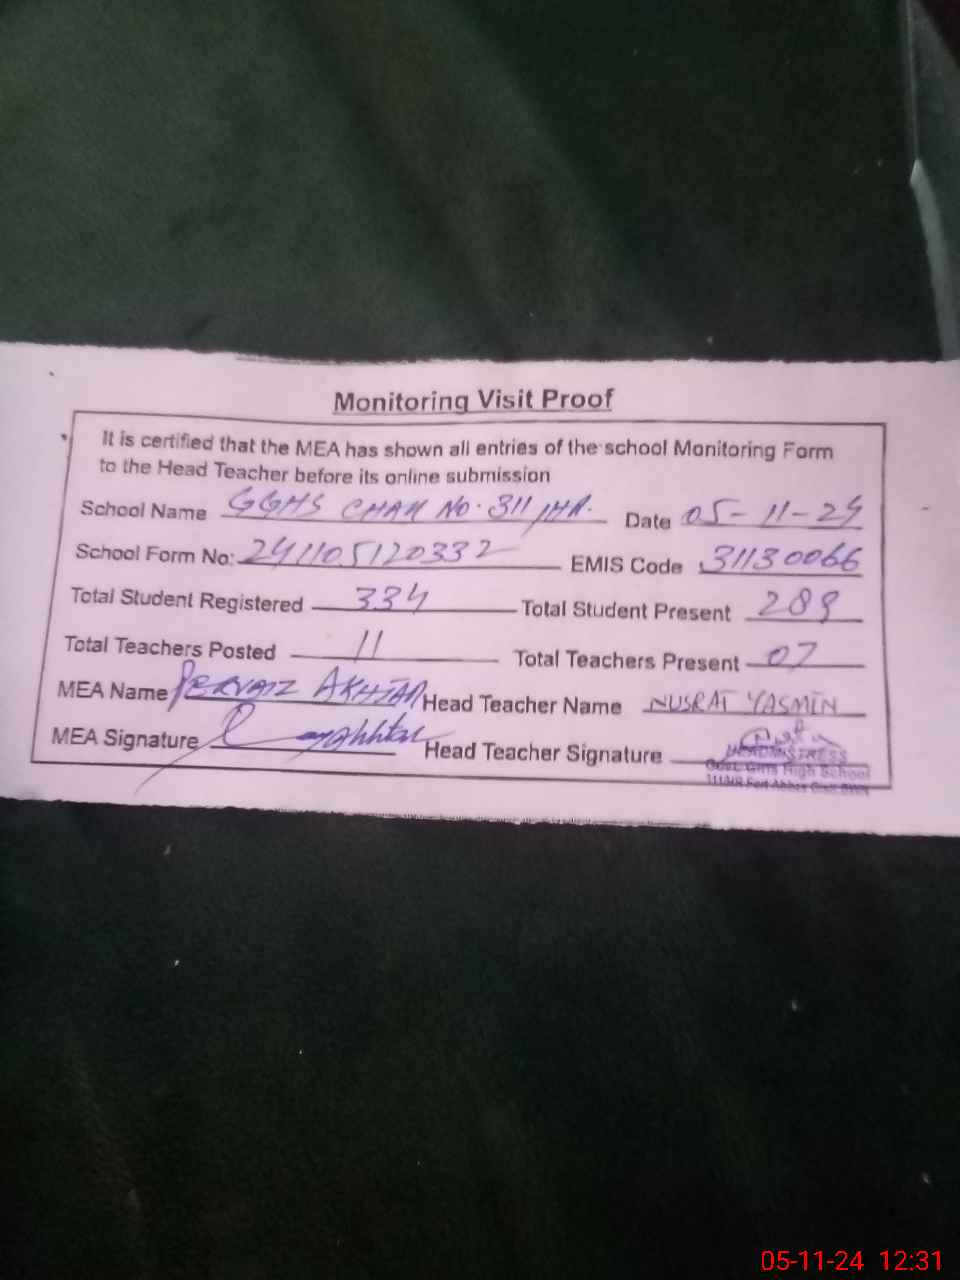 Monitoring Visit Proof
It is certified that the MEA has shown all entries of the school Monitoring Form
to the Head Teacher before its online submission
School Name GGHS CHAK NO. 311/HR. Date 05-11-24
School Form No: 241105120332 EMIS Code 31130066
Total Student Registered 334 Total Student Present 289
Total Teachers Posted 11 Total Teachers Present 07
MEA Name PERVAIZ AKHTAR Head Teacher Name NUSRAT YASMIN
MEA Signature Head Teacher Signature
HEADMISTRESS
Govt. Girls High School
Fort Abbas
05-11-24 12:31